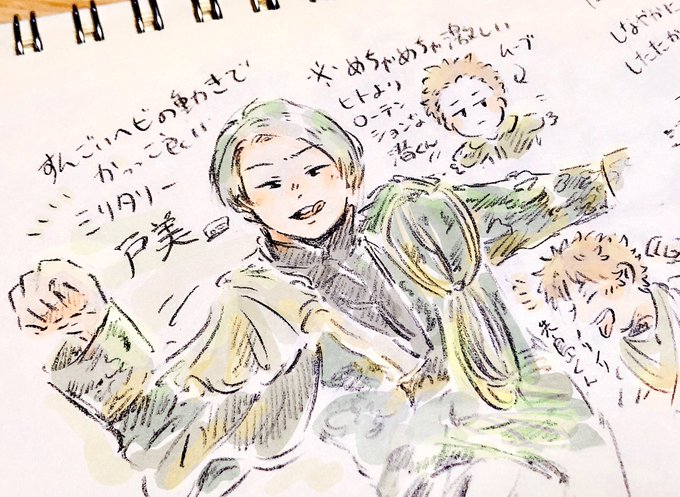 すんごいヘビの動きで
かっこ良い
ミリタリー
戸美
※めちゃめちゃ激しい
ムーブ
ヒトより
ローテン
ションな
潜くん!!
しなやかに
したたか
ノリノリ